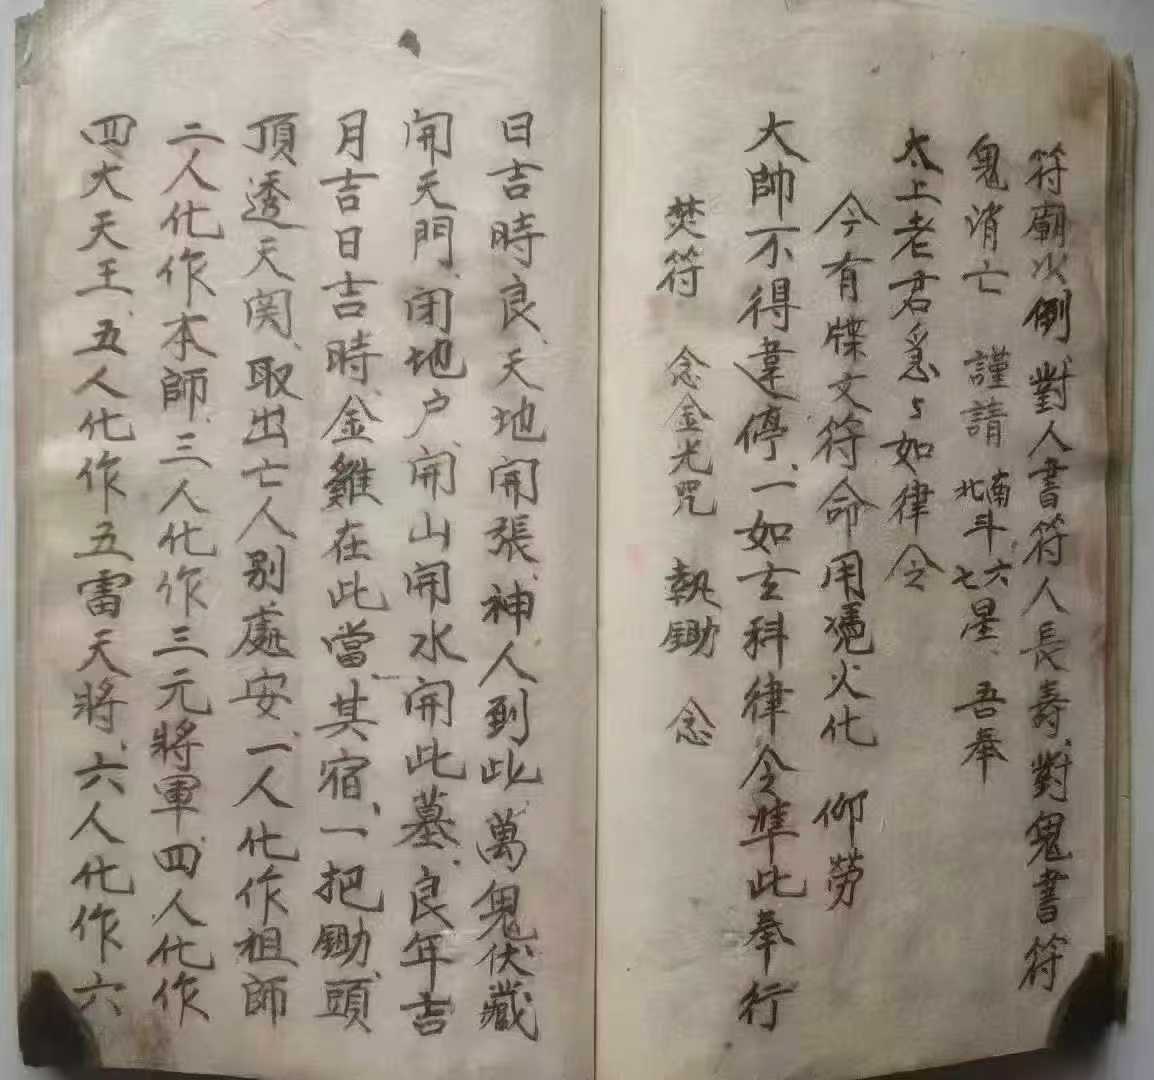 符廟火倒對人書符人長壽對鬼書符
鬼消亡 謹請 南北斗六七星 吾奉
太上老君急〻如律令
今有牒文符命用憑火化 仰勞
大帥不得違停、一如玄科律令準此奉行
焚符 念金光咒 執鋤 念
日吉時良、天地開張、神人到此、萬鬼伏藏
開天門、閉地户、開山開水開此墓、良年吉
月吉日吉時、金雞在此當、其宿、一把鋤、頭
頂透天関、取出亡人別處安、一人化作祖師
二人化作本師、三人化作三元將軍、四人化作
四大天王、五人化作五雷天將、六人化作六